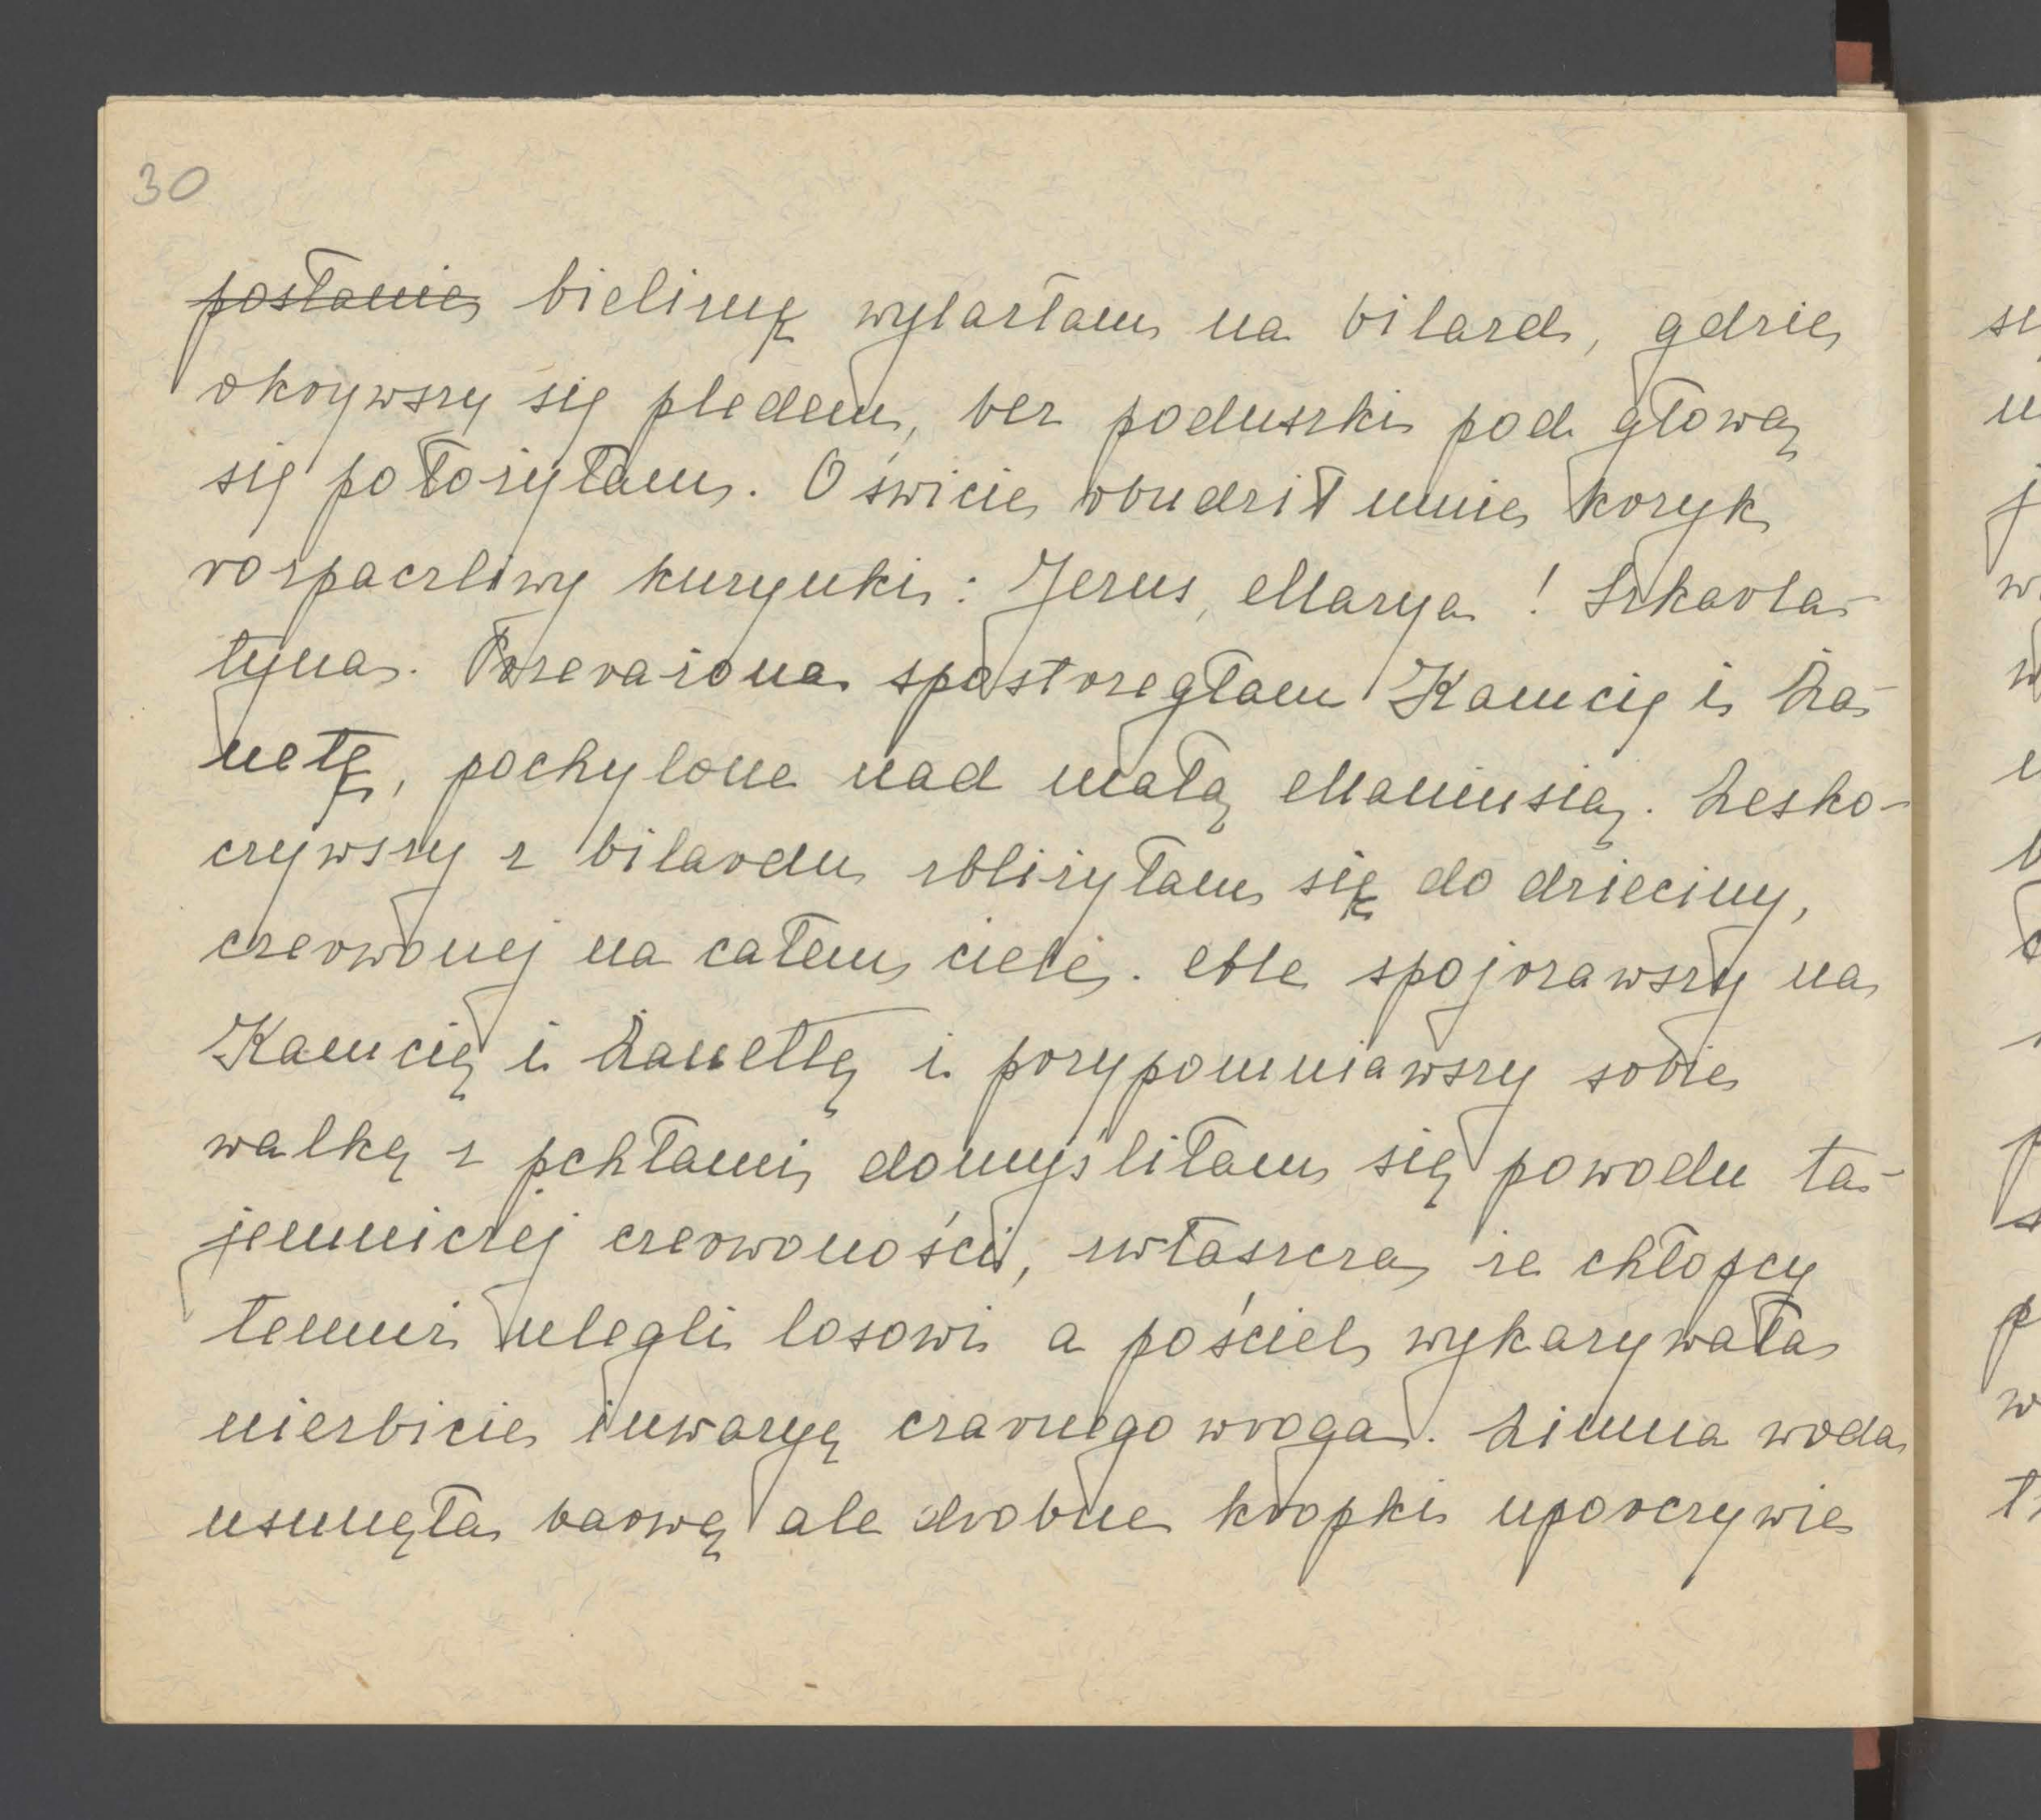 30
posłanie bieliznę wylazłam na bilard, gdzie
okrywszy się pledem, bez poduszki pod głową
się położyłam. O świcie zbudził mnie krzyk
rozpaczliwy kuzynki: Jezus, Marya! Szkarla-
tyna. Przerażona spostrzegłam Kamcię i Ża-
netę, pochylone nad małą Maniusią. Zesko-
czywszy z bilardu zbliżyłam się do dzieciny,
czerwonej na całem ciele. Ale spojrzawszy na
Kamcię i Żanettę i przypomniawszy sobie
walkę z pchłami, domyśliłam się powodu ta-
jemniczej czerwoności, zwłaszcza że chłopcy
temuż ulegli losowi a pościel wykazywała
niezbicie inwazyę czarnego wroga. Zimna woda
usunęła barwę ale drobne kropki uporczywie